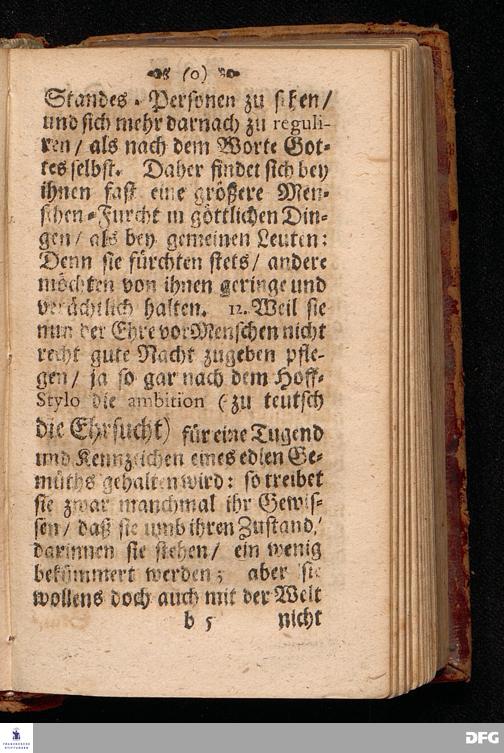 (o)
Standes-Personen zu sehen/
und sich mehr darnach zu reguli-
ren/ als nach dem Worte Got-
tes selbst. Daher findet sich bey
ihnen fast eine größere Men-
schen-Furcht in göttlichen Din-
gen/ als bey gemeinen Leuten:
Denn sie fürchten stets/ andere
möchten von ihnen geringe und
verächtlich halten. 12. Weil sie
nun der Ehre vor Menschen nicht
recht gute Nacht zugeben pfle-
gen/ ja so gar nach dem Hoff-
Stylo die ambition (zu teutsch
die Ehrsucht) für eine Tugend
und Kennzeichen eines edlen Ge-
müths gehalten wird: so treibet
sie zwar manchmal ihr Gewis-
sen/ daß sie umb ihren Zustand/
darinnen sie stehen/ ein wenig
bekümmert werden; aber sie
wollens doch auch mit der Welt
b 5 nicht
FRANCKESCHE
STIFTUNGEN
DFG